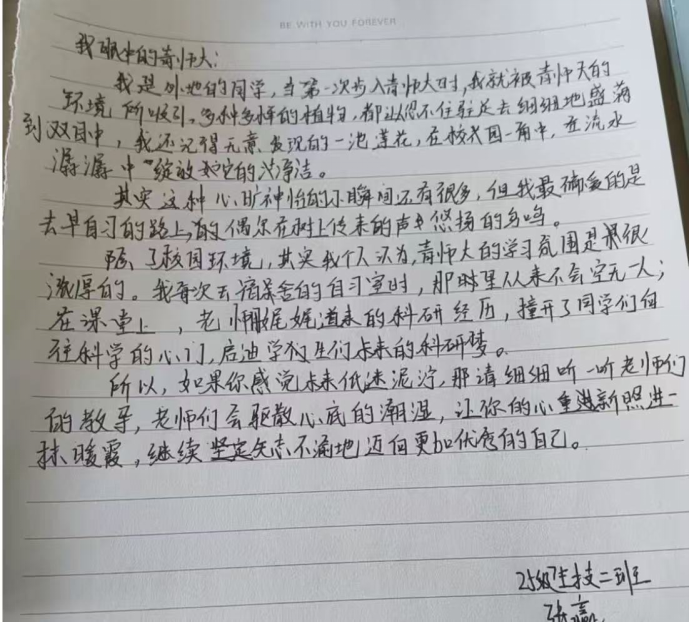 BE WITH YOU FOREVER
我眼中的青师大:
我是外地的同学,当第一次步入青师大时,我就被青师大的
环境所吸引。多种多样的植物,都让忍不住驻足去细细地盛满
到双目中,我还记得无意发现的一池莲花,在校园一角中,在流水
潺潺中绽放它的洁净。
其实这种心旷神怡的小瞬间还有很多,但我最偏爱的是
去早自习的路上,偶尔在树上传来的声声悠扬的鸟鸣。
除了校园环境,其实我个人认为,青师大的学习氛围是很
浓厚的。我每次去宿舍的自习室时,那时里从来不会空无一人;
在课堂上,老师娓娓道来的科研经历,撞开了同学们向
往科学的心门,启迪学生们未来的科研梦。
所以,如果你感觉未来低迷泥泞,那请细细听一听老师们
的教导,老师们会驱散心底的潮湿,让你的心重新照进一
抹暖霞,继续坚定矢志不渝地迈向更加优秀的自己。
25级生技二班
张